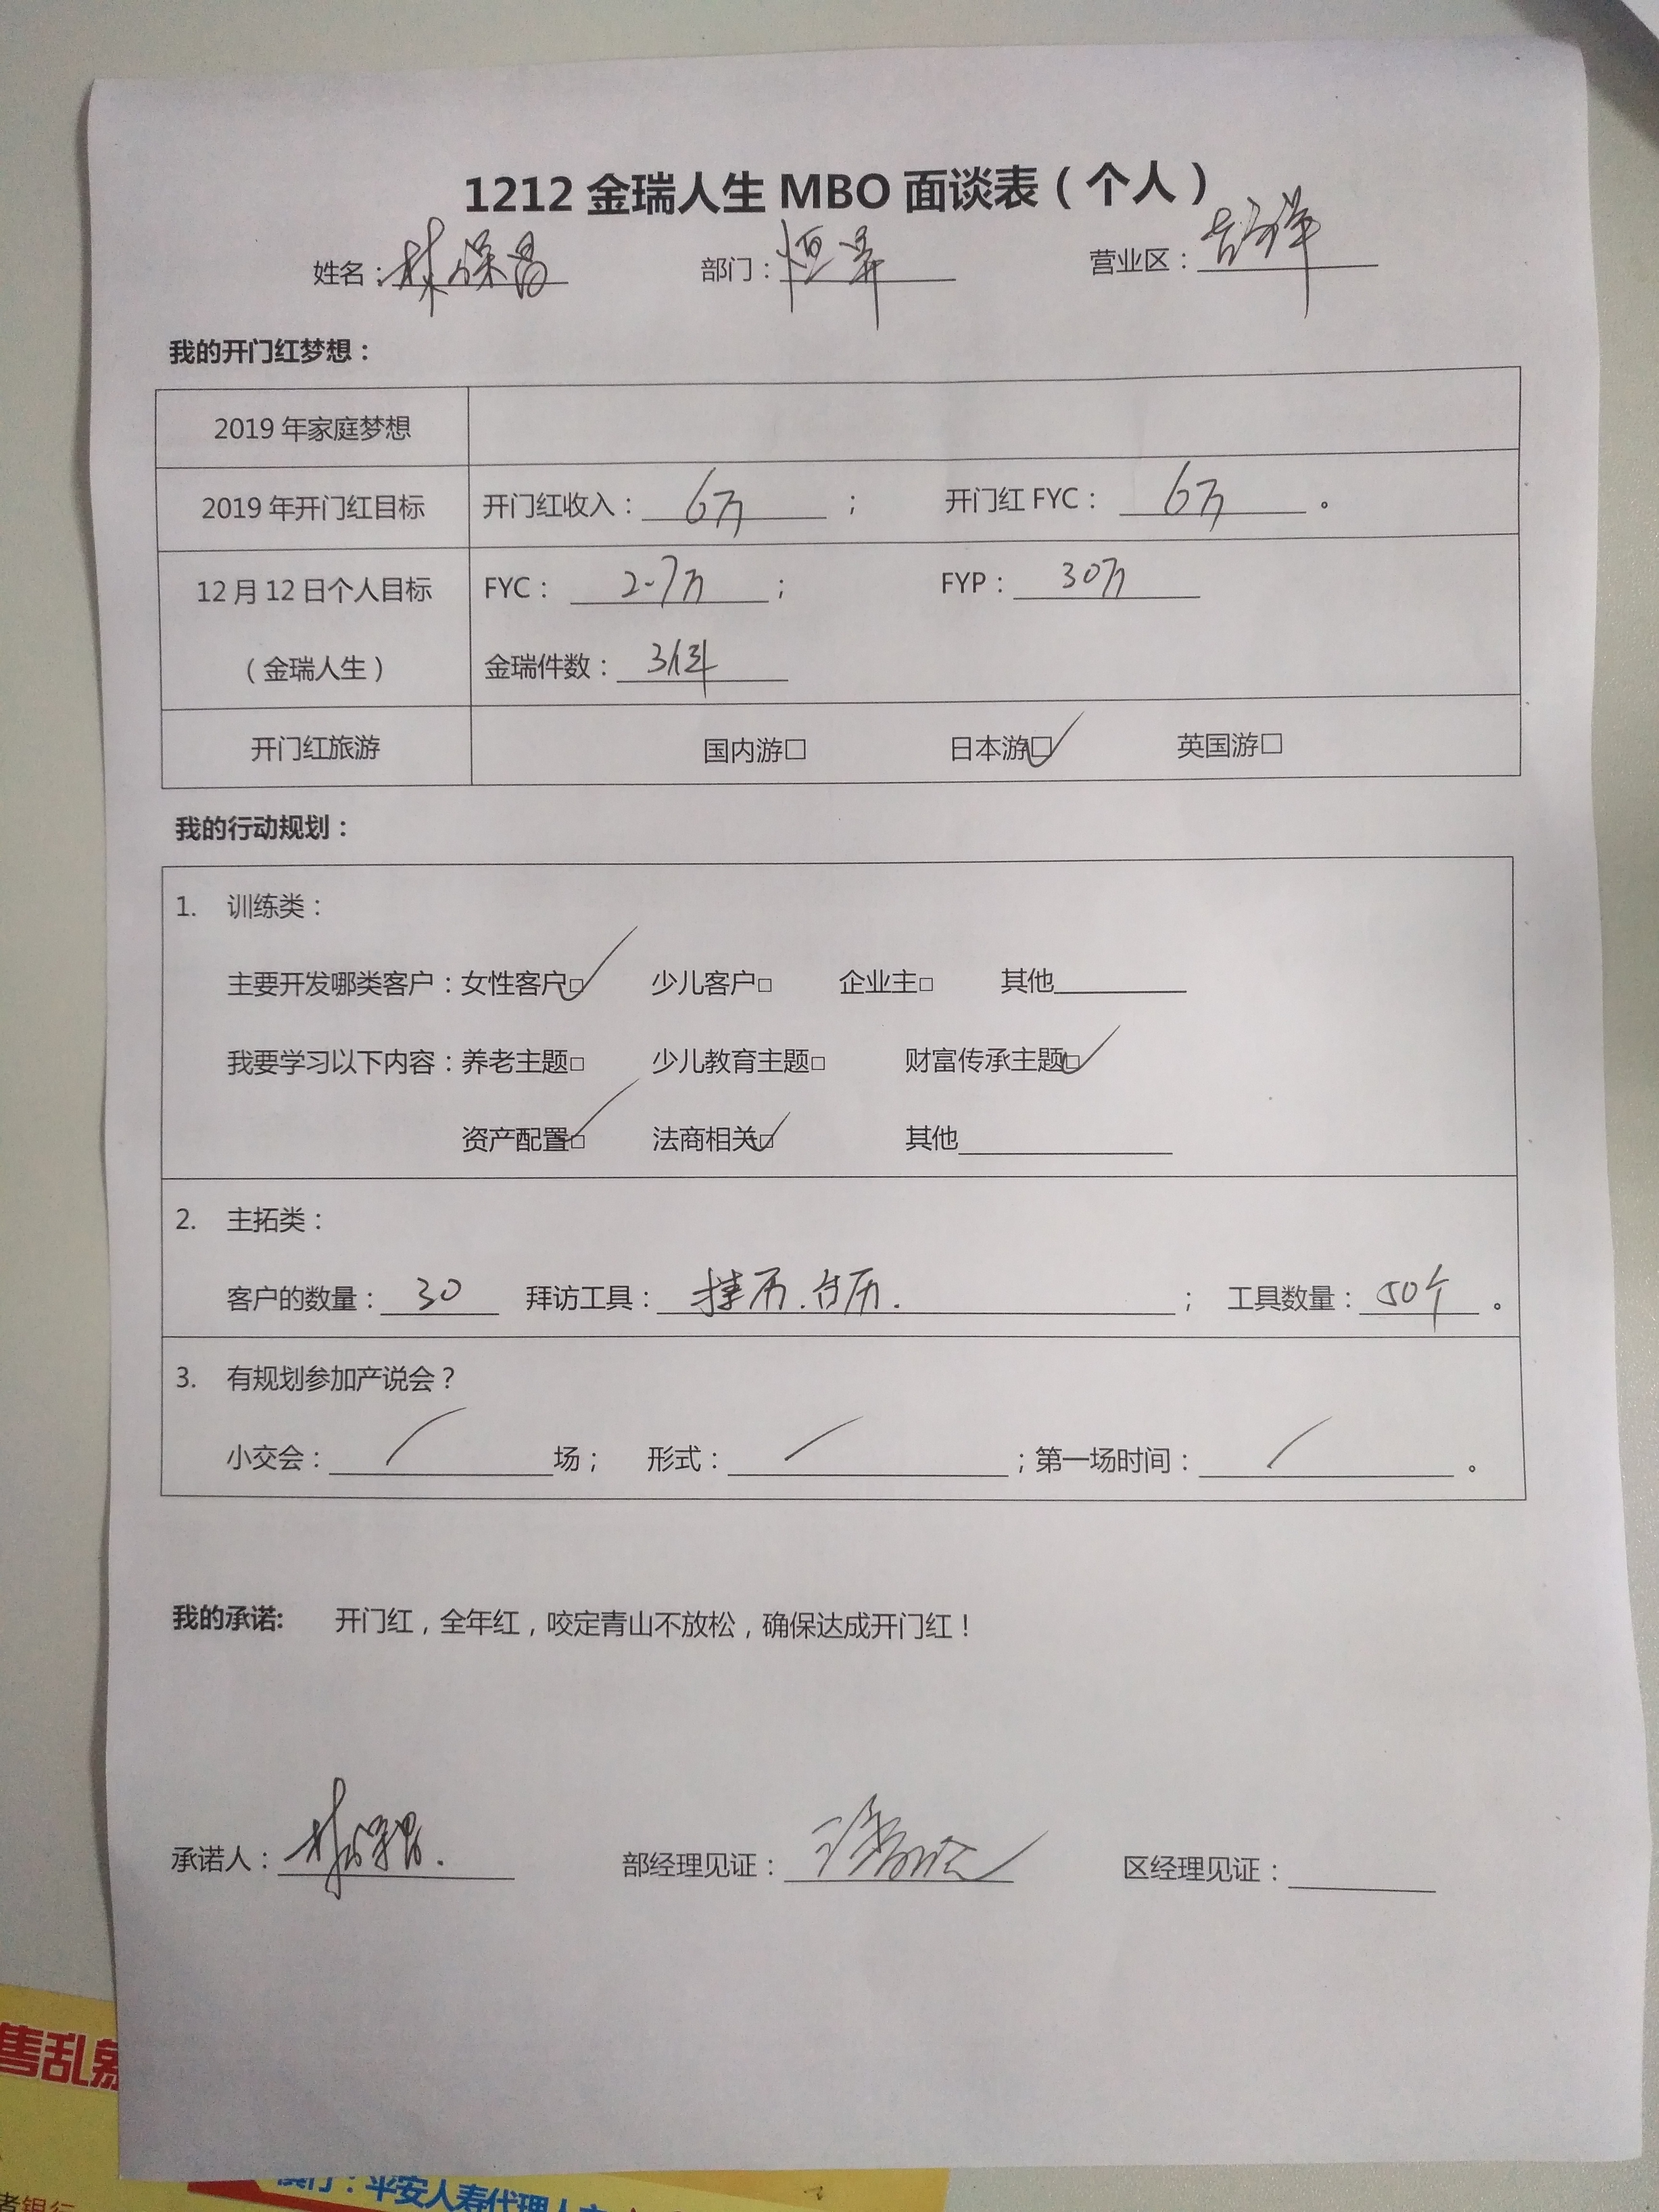 1212 金瑞人生 MBO 面谈表（个人）
姓名：林保昌 部门：恒昇 营业区：
我的开门红梦想：
2019 年家庭梦想
2019 年开门红目标 开门红收入：6万； 开门红 FYC：6万。
12 月 12 日个人目标 FYC：2.7万； FYP：30万
（金瑞人生） 金瑞件数：3件
开门红旅游 国内游□ 日本游☑ 英国游□
我的行动规划：
1. 训练类：
主要开发哪类客户：女性客户☑ 少儿客户□ 企业主□ 其他
我要学习以下内容：养老主题□ 少儿教育主题□ 财富传承主题☑
资产配置☑ 法商相关☑ 其他
2. 主拓类：
客户的数量：30 拜访工具：挂历.台历.； 工具数量：50个。
3. 有规划参加产说会？
小交会：/场； 形式：/；第一场时间：/。
我的承诺: 开门红，全年红，咬定青山不放松，确保达成开门红！
承诺人：林保昌. 部经理见证： 区经理见证：
售乱
：平安人寿代理人
者银行